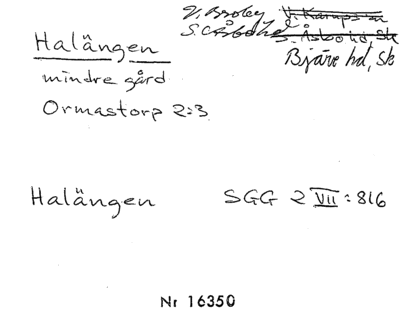 V. Broby V. Karups sn
Halängen S. Åsbo hd, Sk
mindre gård Bjäre hd, Sk
Ormastorp 2:3
Halängen SGG 2 VII : 816
Nr 16350